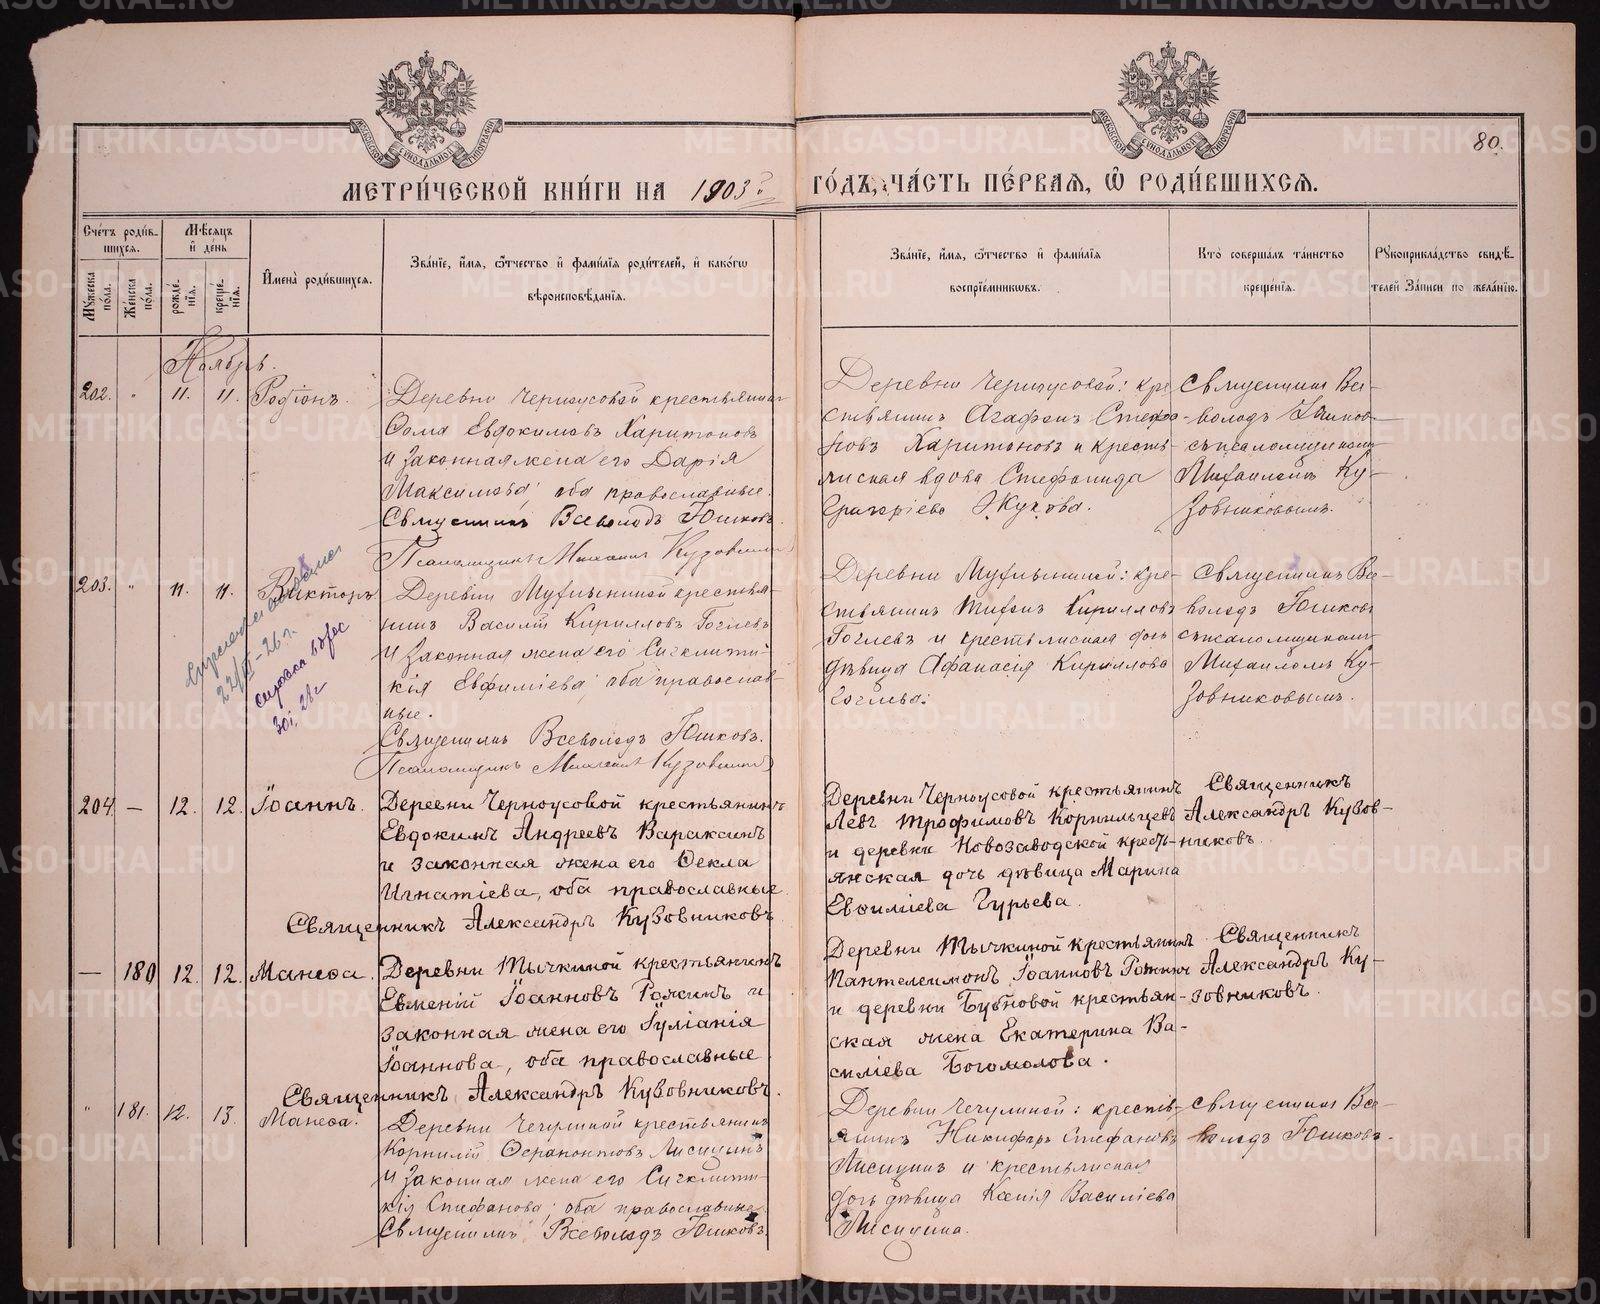 80.
МЕТРИ́ЧЕСКОЙ КНИ́ГИ НА 1903
ГО́ДЪ, ЧА́СТЬ ПЕ́РВАЯ, Ѡ РОДИ́ВШИХСЯ.
Сче́тъ роди́в-
шихся.
Мꙋжеска пола.
Же́нска по́ла.
Мѣ́сяцъ
и де́нь
рожде́нїя.
креще́нїя.
Имена̀ роди́вшихся.
Зва́нїе, и́мя, о́тчество и фами́лїя роди́телей, и како́гѡ
вѣроисповѣ́данїя.
Зва́нїе, и́мя, о́тчество и фами́лїя
воспрїе́мникѡвъ.
Кто̀ соверша́лъ та́инство
креще́нїя.
Рꙋкоприкла́дство свидѣ́-
телей За́писи по жела́нїю.
Ноябрь.
202. " 11. 11. Родіонъ.
Деревни Черноусовой крестьянинъ
Ѳома Евдокимовъ Харитоновъ
и законная жена его Дарія
Максимова; оба православные.
Священникъ Всеволодъ Юшковъ
Псаломщикъ Михаилъ Кузовниковъ
Деревни Черноусовой: кре-
стьянинъ Агафонъ Стефа-
новъ Харитоновъ и кресть-
янская вдова Стефанида
Григоріева Жукова.
Священникъ Все-
володъ Юшковъ
съ псаломщикомъ
Михаиломъ Ку-
зовниковымъ.
203. " 11. 11. Викторъ
22/ -26 г.
28 г
Деревни крестья-
нинъ Василій Кирилловъ Гогилевъ
и законная жена его Сигклити-
кія Евфиміева; оба православ-
ные.
Священникъ Всеволодъ Юшковъ.
Псаломщикъ Михаилъ Кузовниковъ
Деревни кре-
стьянинъ Кирилловъ
и крестьянская дочь
дѣвица Аѳанасія Кириллова
Священникъ Все-
володъ Юшковъ
съ псаломщикомъ
Михаиломъ Ку-
зовниковымъ.
204. — 12. 12. Іоаннъ.
Деревни Черноусовой крестьянинъ
Евдокимъ Андреевъ Вараксинъ
и законная жена его Ѳекла
Игнатіева, оба православные.
Священникъ Александръ Кузовниковъ
Деревни Черноусовой крестьянинъ
Левъ Трофимовъ Корнильцевъ
и деревни Новозаводской крестъ-
янская дочь дѣвица Марина
Евсиліева Гурьева.
Священникъ
Александръ Кузов-
никовъ.
— 180 12. 12. Манефа.
Деревни Тычкиной крестьянинъ
Евменій Іоанновъ Рожинъ и
законная жена его Іуліанія
Іоаннова, оба православные.
Священникъ Александръ Кузовниковъ.
Деревни Тычкиной крестьянинъ
Пантелеимонъ Іоанновъ Рожинъ
и деревни Бубновой крестьян-
ская жена Екатерина Ва-
силіева Богомолова.
Священникъ
Александръ Ку-
зовниковъ.
" 181. 12. 13. Манефа.
Деревни Чечулиной крестьянинъ
Корнилій Ѳерапонтовъ Лисицинъ
и законная жена его Сигклити-
кія Стефанова; оба православные
Священникъ Всеволодъ Юшковъ
Деревни Чечулиной: кресть-
янинъ Никифоръ Стефановъ
Лисицинъ и крестьянская
дочь дѣвица Ксенія Василіева
Лисицина.
Священникъ Все-
володъ Юшковъ.